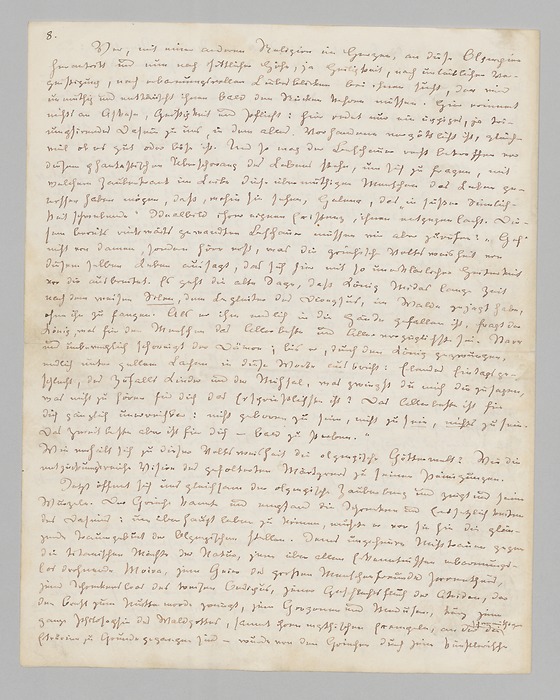 8.
Wer, mit einer anderen Religion im Herzen, an diese Olympier
herantritt und nun nach sittlicher Höhe, ja Heiligkeit, nach unleiblicher Ver-
geistigung, nach erbarmungsvollen Liebesblicken bei ihnen sucht, der wird
unmuthig und enttäuscht ihnen bald den Rücken kehren müssen. Hier erinnert
nichts an Askese, Geistigkeit und Pflicht: hier redet nur ein üppiges, ja tri-
umphirendes Dasein zu uns, in dem alles Vorhandene vergöttlicht ist, gleich-
viel ob es gut oder böse ist. Und so mag der Beschauer recht betroffen vor
diesem phantastischen Ueberschwang des Lebens stehn, um sich zu fragen, mit
welchem Zaubertrank im Leibe diese übermüthigen Menschen das Leben ge-
nossen haben mögen, daß, wohin sie sehen, Helena, das „in süßer Sinnlich-
keit schwebende“ Idealbild ihrer eignen Existenz, ihnen entgegen lacht. Die-
sem bereits rückwärts gewandten Beschauer müssen wir aber zurufen: „Geh'
nicht von dannen, sondern höre erst, was die griechische Volksweisheit von
diesem selben Leben aussagt, das sich hier mit so unerklärlicher Heiterkeit
vor dir ausbreitet. Es geht die alte Sage, daß König Midas lange Zeit
nach dem weisen Silen, dem Begleiter des Dionysus, im Walde gejagt habe,
ohne ihn zu fangen. Als er ihm endlich in die Hände gefallen ist, fragt der
König, was für den Menschen das Allerbeste und Allervorzüglichste sei. Starr
und unbeweglich schweigt der Dämon; bis er, durch den König gezwungen,
endlich unter gellem Lachen in diese Worte ausbricht: Elendes Eintagsge-
schlecht, des Zufalls Kinder und der Mühsal, was zwingst du mich dir zu sagen,
was nicht zu hören für dich das Ersprießlichste ist? Das Allerbeste ist für
dich gänzlich unerreichbar: nicht geboren zu sein, nicht zu sein, nichts zu sein.
Das Zweitbeste aber ist für dich — bald zu sterben.“
Wie verhält sich zu dieser Volksweisheit die olympische Götterwelt? Wie die
entzückungsreiche Vision des gefolterten Märtyrers zu seinen Peinigungen.
Jetzt öffnet sich uns gleichsam der olympische Zauberberg und zeigt uns seine
Wurzeln. Der Grieche kannte und empfand die Schrecken und Entsetzlichkeiten
des Daseins: um überhaupt leben zu können, mußte er vor sie hin die glän-
zende Traumgeburt der Olympischen stellen. Jenes ungeheure Mißtrauen gegen
die titanischen Mächte der Natur, jene über allen Erkenntnissen erbarmungs-
los thronende Moira, jener Geier des großen Menschenfreundes Prometheus,
jenes Schreckensloos des weisen Oedipus, jener Geschlechtsfluch der Atriden, der
den Orest zum Muttermorde zwingt, jene Gorgonen und Medusen, kurz jene
ganze Philosophie des Waldgottes, sammt ihren mythischen Exempeln, an der die
schwermüthigen
Etrurier zu Grunde gegangen sind — wurde von den Griechen durch jene künstlerische